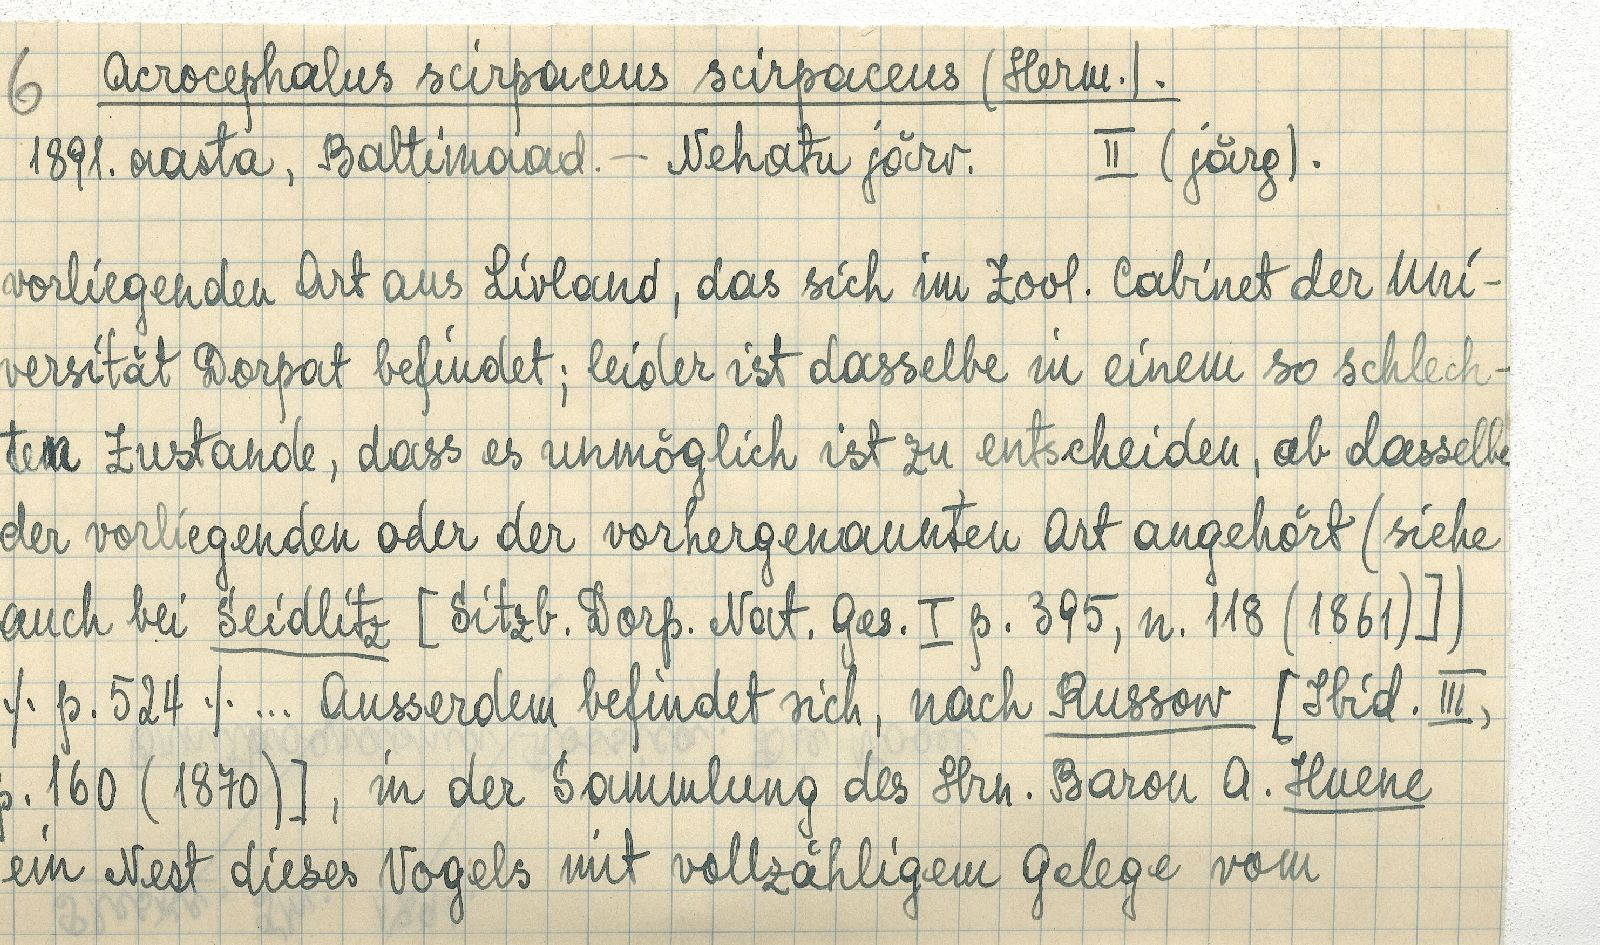 6 Acrocephalus scirpaceus scirpaceus (Herm.).
1891. aasta, Baltimaad. – Nehatu järv. II (järg).
vorliegenden Art aus Livland, das sich im Zool. Cabinet der Uni-
versität Dorpat befindet; leider ist dasselbe in einem so schlech-
ten Zustande, dass es unmöglich ist zu entscheiden, ob dasselbe
der vorliegenden oder der vorhergenannten Art angehört (siehe
auch bei Seidlitz [Sitzb. Dorp. Nat. Ges. I p. 395, n. 118 (1861)])
./. p. 524 ./. ... Ausserdem befindet sich, nach Russow [Ibid. III,
p. 160 (1870)], in der Sammlung des Hrn. Baron A. Huene
ein Nest dieses Vogels mit vollzähligem Gelege vom